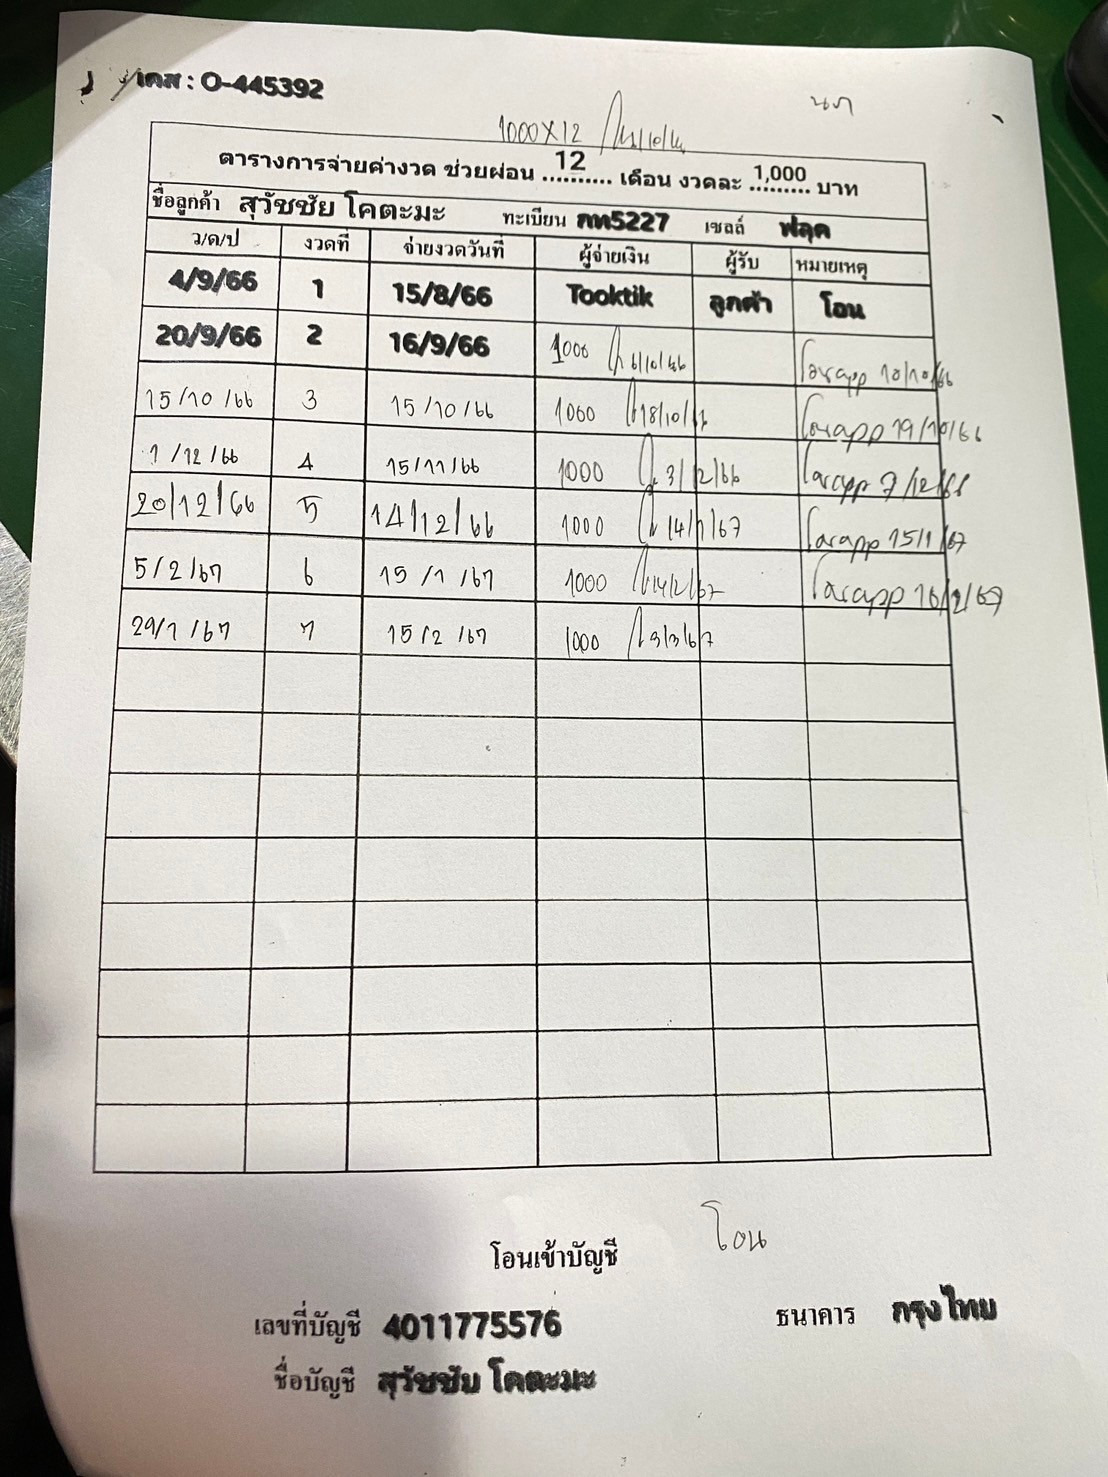 เคส : O-445392
นภ
1000X12
ตารางการจ่ายค่างวด ช่วยผ่อน ....12.... เดือน งวดละ ..1,000.. บาท
ชื่อลูกค้า สุวัชชัย โคตะมะ ทะเบียน กท5227 เซลล์ ฟลุค
ว/ด/ป งวดที่ จ่ายงวดวันที่ ผู้จ่ายเงิน ผู้รับ หมายเหตุ
4/9/66 1 15/8/66 Tooktik ลูกค้า โอน
20/9/66 2 16/9/66 1000 6/10/66 โอนapp 10/10/66
15/10/66 3 15/10/66 1000 18/10/ โอนapp 19/10/66
1/12/66 4 15/11/66 1000 3/12/66 โอนapp 7/12/66
20/12/66 5 14/12/66 1000 14/1/67 โอนapp 15/1/67
5/2/67 6 15/1/67 1000 14/2/67 โอนapp 16/2/67
29/1/67 7 15/2/67 1000 3/3/67
โอนเข้าบัญชี โอน
เลขที่บัญชี 4011775576 ธนาคาร กรุงไทย
ชื่อบัญชี สุวัชชัย โคตะมะ